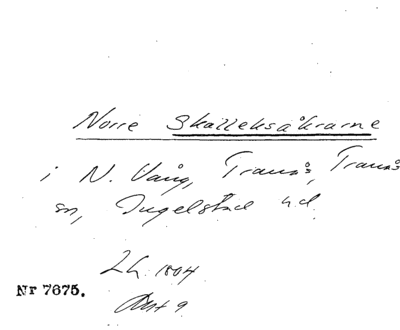 Norre Skälleksåkrarne
i N. Vång, Tranås, Tranås
sn, Ingelstad hd.
LH. 1804
Nr 7675.
Akt 9